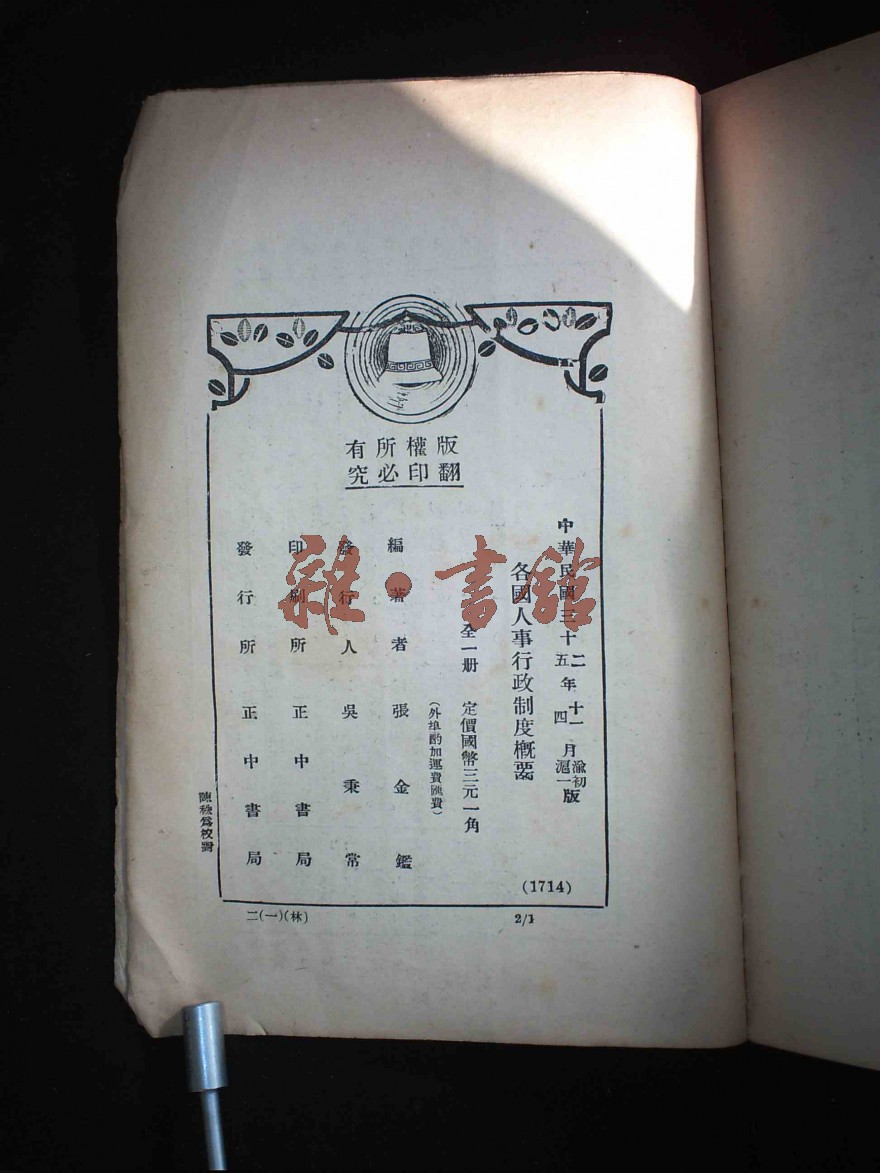 版權所有
翻印必究
中華民國三十二年十一月渝初版
中華民國三十五年四月滬一版
各國人事行政制度概要
全一册 定價國幣三元一角
(外埠酌加運費匯費)
編著者 張金鑑
發行人 吳秉常
印刷所 正中書局
發行所 正中書局
(1714)
二(一)(林)
2/1
雜·書館